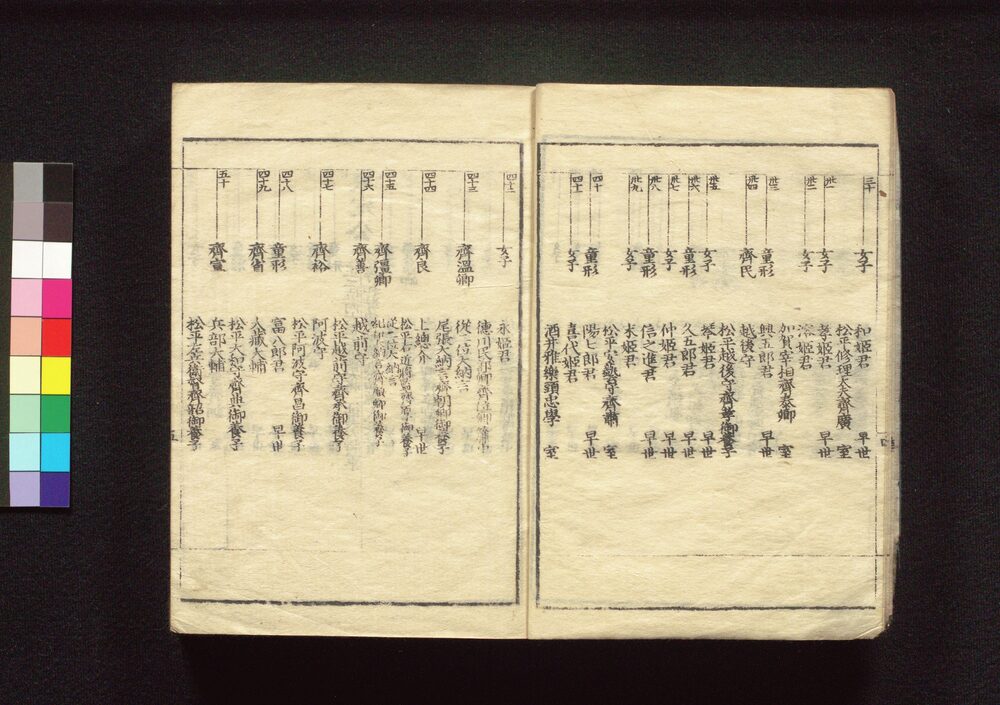 三十
女子
和姫君 早世
松平修理大夫齊廣 室
丗一
女子
孝姫君 早世
丗二
女子
溶姫君
加賀宰相齊泰卿 室
丗三
童形
興五郎君 早世
丗四
齊民
越後守
松平越後守齊孝御養子
丗五
女子
姫君 早世
丗六
童形
久五郎君 早世
丗七
女子
仲姫君 早世
丗八
童形
信之進君 早世
丗九
女子
末姫君
松平安藝守齊肅 室
四十
童形
陽七郎君 早世
四十一
女子
喜代姫君
酒井雅樂頭忠學 室
四十二
女子
永姫君
徳川民部卿齊位卿簾中
四十三
齊温卿
從二位大納言
尾張大納言齊朝卿御養子
四十四
齊良
上總介 早世
松平右近將監齊厚御養子
四十五
齊彊卿
從二位大納言
紀伊大納言齊順卿御養子
四十六
齊善
越前守
松平越前守齊承御養子
四十七
齊裕
阿波守
松平阿波守齊昌御養子
四十八
童形
富八郎君 早世
四十九
齊省
大藏大輔
松平大和守齊典御養子
五十
齊宣
兵部大輔
松平左兵衛督齊韶御養子